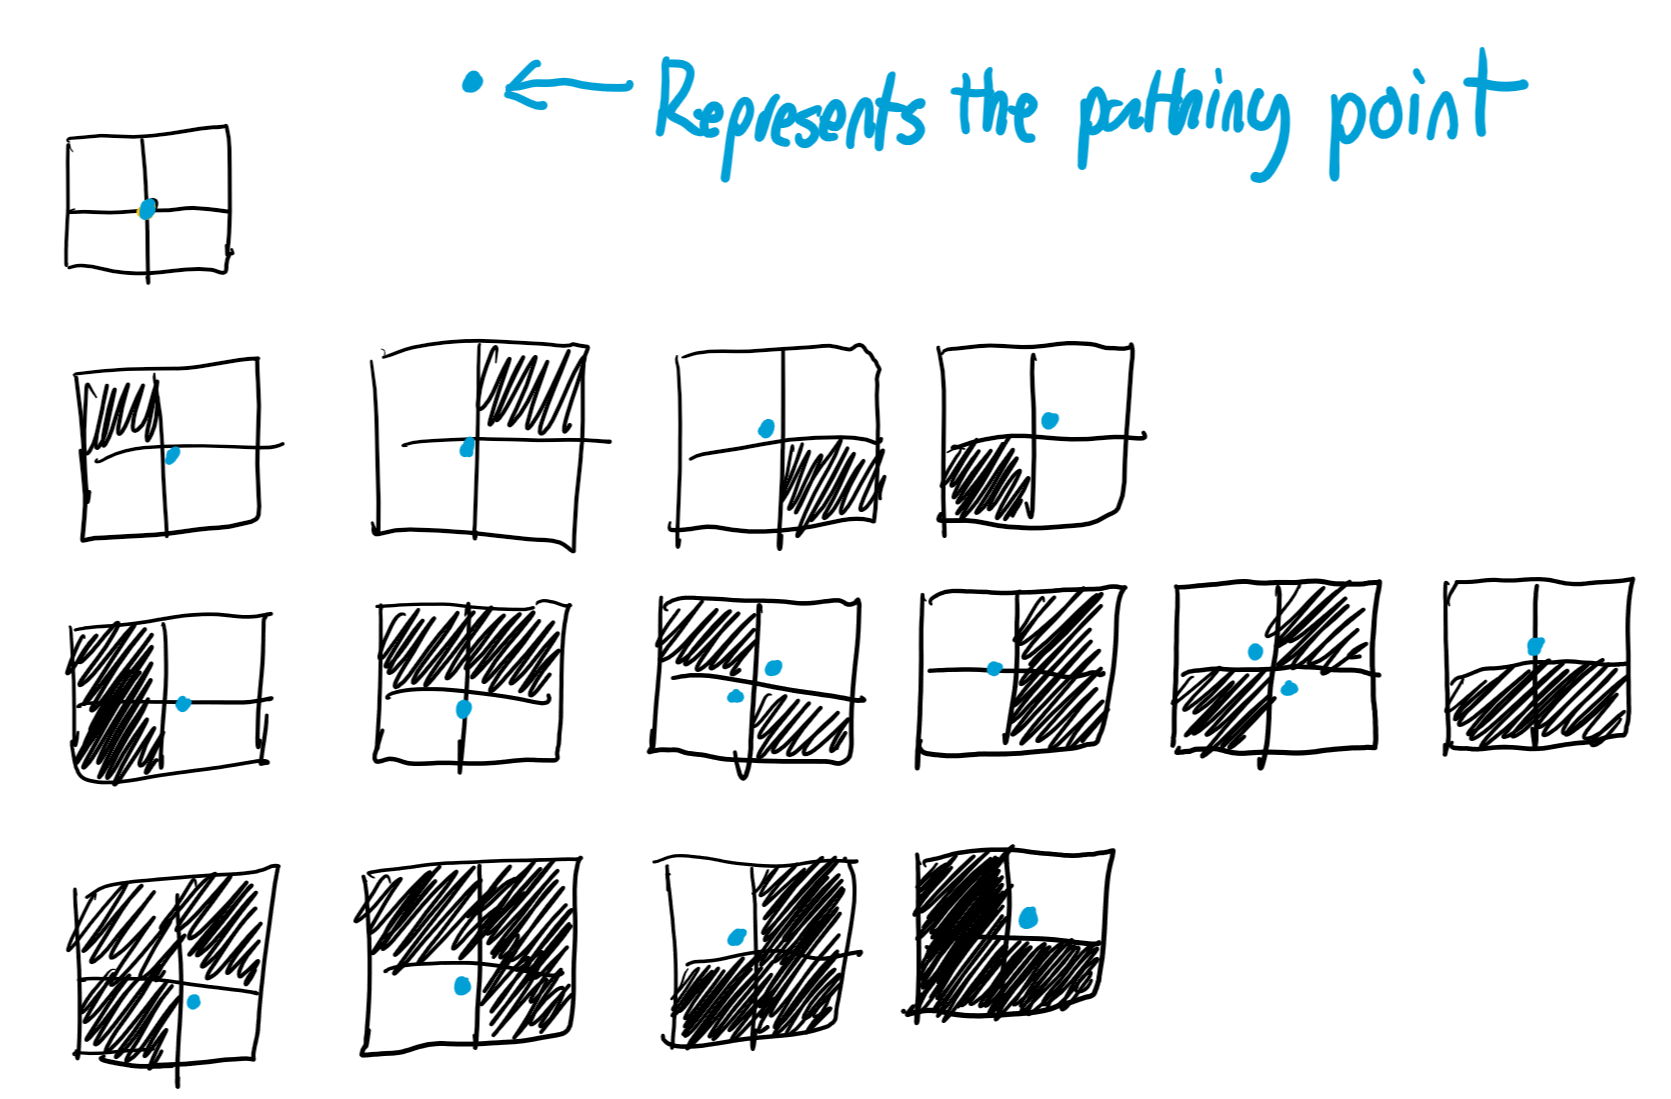 Represents the pathing point